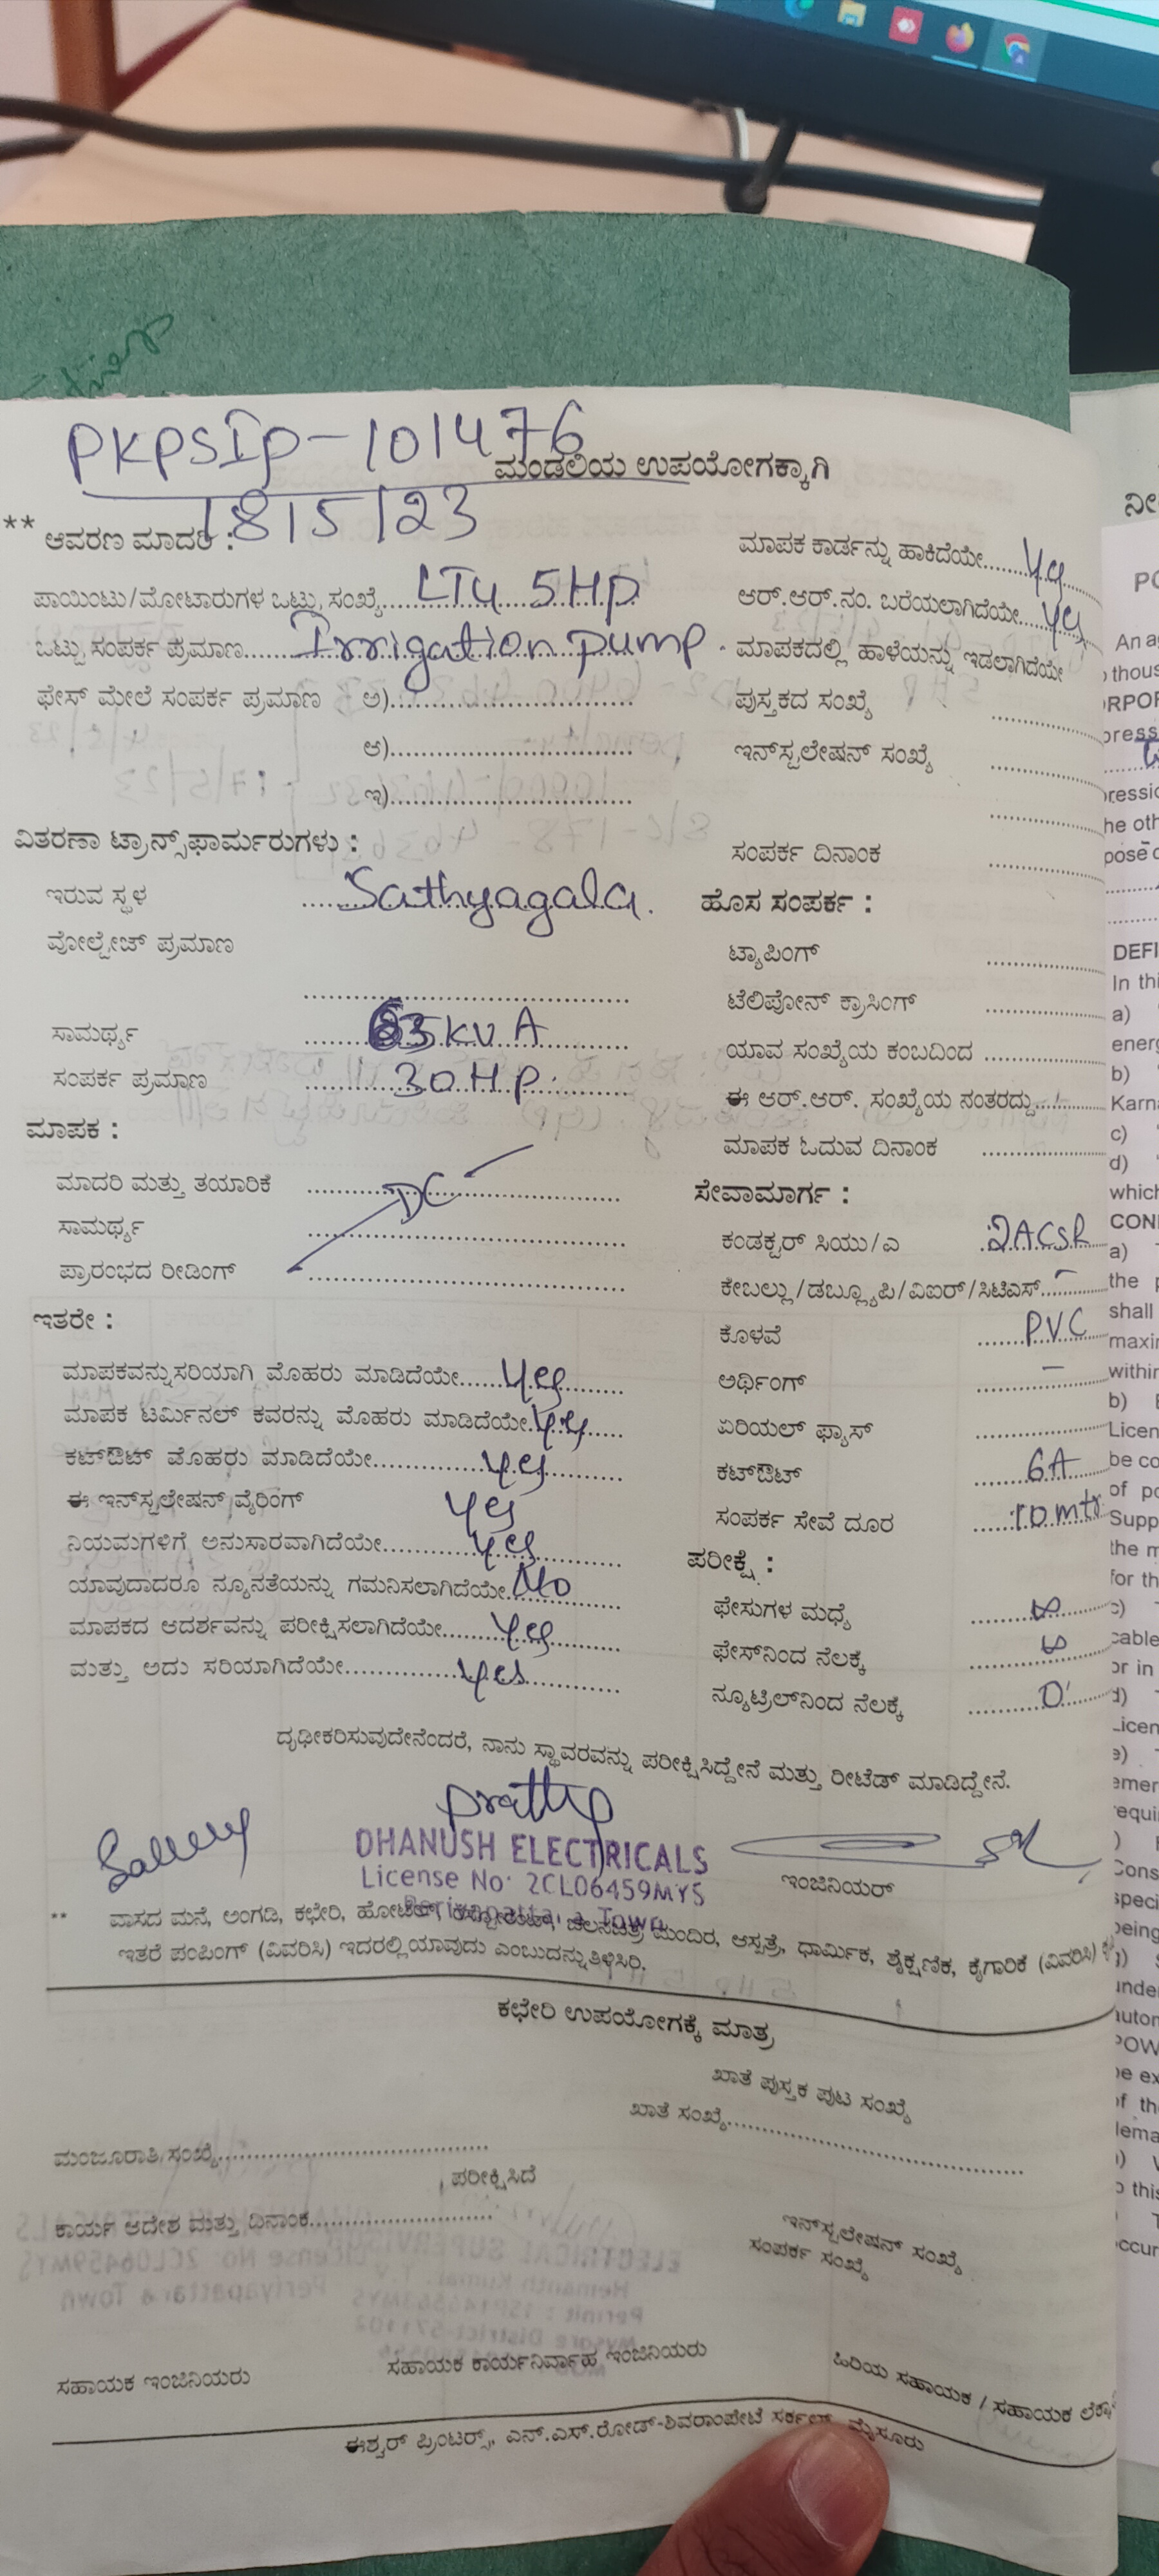 PKPSIP-101476
ಮಂಡಲಿಯ ಉಪಯೋಗಕ್ಕಾಗಿ
18/5/23
** ಆವರಣ ಮಾದರಿ :
ಪಾಯಿಂಟು/ಮೋಟಾರುಗಳ ಒಟ್ಟು ಸಂಖ್ಯೆ......LT4 5HP
ಒಟ್ಟು ಸಂಪರ್ಕ ಪ್ರಮಾಣ......Irrigation pump.
ಫೇಸ್ ಮೇಲೆ ಸಂಪರ್ಕ ಪ್ರಮಾಣ ಅ)......
ಆ)......
ಇ)......
ವಿತರಣಾ ಟ್ರಾನ್ಸ್‌ಫಾರ್ಮರುಗಳು :
ಇರುವ ಸ್ಥಳ ......Sathyagala.
ವೋಲ್ಟೇಜ್ ಪ್ರಮಾಣ ......
ಸಾಮರ್ಥ್ಯ ......63 KVA
ಸಂಪರ್ಕ ಪ್ರಮಾಣ ......30HP.
ಮಾಪಕ :
ಮಾದರಿ ಮತ್ತು ತಯಾರಿಕೆ ......DC
ಸಾಮರ್ಥ್ಯ ......
ಪ್ರಾರಂಭದ ರೀಡಿಂಗ್ ......
ಇತರೇ :
ಮಾಪಕವನ್ನು ಸರಿಯಾಗಿ ಮೊಹರು ಮಾಡಿದೆಯೇ......yes
ಮಾಪಕ ಟರ್ಮಿನಲ್ ಕವರನ್ನು ಮೊಹರು ಮಾಡಿದೆಯೇ...yes
ಕಟ್‌ಔಟ್ ಮೊಹರು ಮಾಡಿದೆಯೇ......yes
ಈ ಇನ್‌ಸ್ಟಲೇಷನ್ ವೈರಿಂಗ್ yes
ನಿಯಮಗಳಿಗೆ ಅನುಸಾರವಾಗಿದೆಯೇ......yes
ಯಾವುದಾದರೂ ನ್ಯೂನತೆಯನ್ನು ಗಮನಿಸಲಾಗಿದೆಯೇ...No
ಮಾಪಕದ ಆದರ್ಶವನ್ನು ಪರೀಕ್ಷಿಸಲಾಗಿದೆಯೇ......yes
ಮತ್ತು ಅದು ಸರಿಯಾಗಿದೆಯೇ......yes
ಮಾಪಕ ಕಾರ್ಡನ್ನು ಹಾಕಿದೆಯೇ......yes
ಆರ್.ಆರ್.ನಂ. ಬರೆಯಲಾಗಿದೆಯೇ...yes
ಮಾಪಕದಲ್ಲಿ ಹಾಳೆಯನ್ನು ಇಡಲಾಗಿದೆಯೇ
ಪುಸ್ತಕದ ಸಂಖ್ಯೆ ......
ಇನ್‌ಸ್ಟಲೇಷನ್ ಸಂಖ್ಯೆ ......
ಸಂಪರ್ಕ ದಿನಾಂಕ ......
ಹೊಸ ಸಂಪರ್ಕ :
ಟ್ಯಾಪಿಂಗ್ ......
ಟೆಲಿಪೋನ್ ಕ್ರಾಸಿಂಗ್ ......
ಯಾವ ಸಂಖ್ಯೆಯ ಕಂಬದಿಂದ ......
ಈ ಆರ್.ಆರ್. ಸಂಖ್ಯೆಯ ನಂತರದ್ದು......
ಮಾಪಕ ಓದುವ ದಿನಾಂಕ ......
ಸೇವಾಮಾರ್ಗ :
ಕಂಡಕ್ಟರ್ ಸಿಯು/ಎ 2ACSR
ಕೇಬಲ್ಲು/ಡಬ್ಲ್ಯೂಪಿ/ವಿಐರ್/ಸಿಟಿಎಸ್...... –
ಕೊಳವೆ ......PVC
ಅರ್ಥಿಂಗ್ ...... –
ಏರಿಯಲ್ ಫ್ಯೂಸ್ ......
ಕಟ್‌ಔಟ್ ......6A
ಸಂಪರ್ಕ ಸೇವೆ ದೂರ ......10mtr
ಪರೀಕ್ಷೆ :
ಫೇಸುಗಳ ಮಧ್ಯೆ ......∞
ಫೇಸ್‌ನಿಂದ ನೆಲಕ್ಕೆ ......∞
ನ್ಯೂಟ್ರಲ್‌ನಿಂದ ನೆಲಕ್ಕೆ ......0
ದೃಢೀಕರಿಸುವುದೇನೆಂದರೆ, ನಾನು ಸ್ಥಾವರವನ್ನು ಪರೀಕ್ಷಿಸಿದ್ದೇನೆ ಮತ್ತು ರೀಟೆಡ್ ಮಾಡಿದ್ದೇನೆ.
DHANUSH ELECTRICALS
License No: 2CL06459MYS
Periyapattana Town
ಇಂಜಿನಿಯರ್
** ವಾಸದ ಮನೆ, ಅಂಗಡಿ, ಕಛೇರಿ, ಹೋಟೆಲ್, ಚಲನಚಿತ್ರ ಮಂದಿರ, ಆಸ್ಪತ್ರೆ, ಧಾರ್ಮಿಕ, ಶೈಕ್ಷಣಿಕ, ಕೈಗಾರಿಕೆ (ವಿವರಿಸಿ)
ಇತರೆ ಪಂಪಿಂಗ್ (ವಿವರಿಸಿ) ಇದರಲ್ಲಿ ಯಾವುದು ಎಂಬುದನ್ನು ತಿಳಿಸಿರಿ.
ಕಛೇರಿ ಉಪಯೋಗಕ್ಕೆ ಮಾತ್ರ
ಖಾತೆ ಪುಸ್ತಕ ಪುಟ ಸಂಖ್ಯೆ
ಖಾತೆ ಸಂಖ್ಯೆ......
ಮಂಜೂರಾತಿ ಸಂಖ್ಯೆ......
ಪರೀಕ್ಷಿಸಿದೆ
ಕಾರ್ಯ ಆದೇಶ ಮತ್ತು ದಿನಾಂಕ......
ಇನ್‌ಸ್ಟಲೇಷನ್ ಸಂಖ್ಯೆ
ಸಂಪರ್ಕ ಸಂಖ್ಯೆ
ಸಹಾಯಕ ಇಂಜಿನಿಯರು
ಸಹಾಯಕ ಕಾರ್ಯನಿರ್ವಾಹ ಇಂಜಿನಿಯರು
ಹಿರಿಯ ಸಹಾಯಕ / ಸಹಾಯಕ
ಈಶ್ವರ್ ಪ್ರಿಂಟರ್ಸ್, ಎನ್.ಎಸ್.ರೋಡ್-ಶಿವರಾಂಪೇಟೆ ಸರ್ಕಲ್, ಮೈಸೂರು